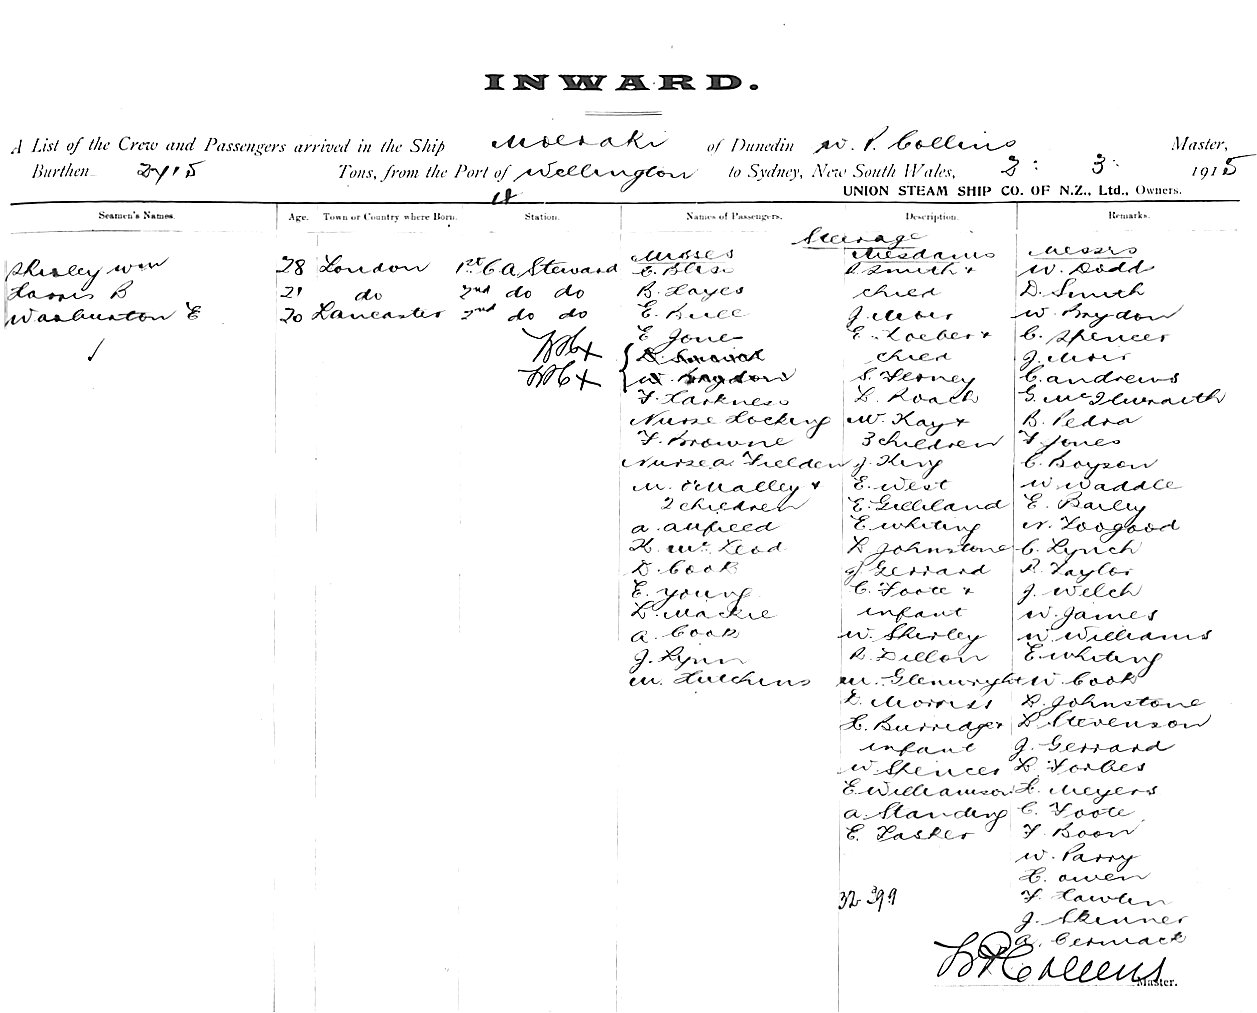 INWARD.
A List of the Crew and Passengers arrived in the Ship Moeraki of Dunedin W. P. Collins Master,
Burthen 2715 Tons, from the Port of Wellington to Sydney, New South Wales, 2: 3: 1915
UNION STEAM SHIP CO. OF N.Z., Ltd., Owners.
Seamen's Names. Age. Town or Country where Born. Station. Names of Passengers. Description. Remarks.
Steerage
Misses Mesdams Messrs
Shirley Wm 28 London 1st C A Steward E. Blise R Smith + W. Dodd
Harris B 21 do 2nd do do B. Hayes child D. Smith
Wasburton E 20 Lancaster 2nd do do E. Bull J. Moir W. Brydon
E Jone E. Loeber + C. Spencer
child J. Moir
W. Brydon S. Ferney C. Andrews
F. Harkness L. Roach G. McIlwraith
Nurse Hocking W. Kay + B. Pedra
F. Browne 3 children F. Jones
Nurse A. Fielden J. King C. Boyson
M. O'Malley + E. West W Waddle
2 children E Gilliland E. Bailey
A. Allfield E Whiting N. Toogood
K. McLeod L Johnstone C. Lynch
D. Cook J Gerrard R. Taylor
E. Young C. Foote + J. Welch
L. Mackie infant W. James
A. Cook W. Shirley W Williams
J. Lynn R. Dillon E Whiting
M. Hutchins M. Glenwright W. Cook
L. Morriss L. Johnstone
H. Burridge + L Stevenson
infant J. Gerrard
W Spencer L Forbes
E Williamson H. Meyers
A. Standing C. Foote
E. Tasker F. Boon
W. Parry
H. Owen
32 399 F. Hawlin
J. Skinner
A. Cermack
W P Collins
Master.